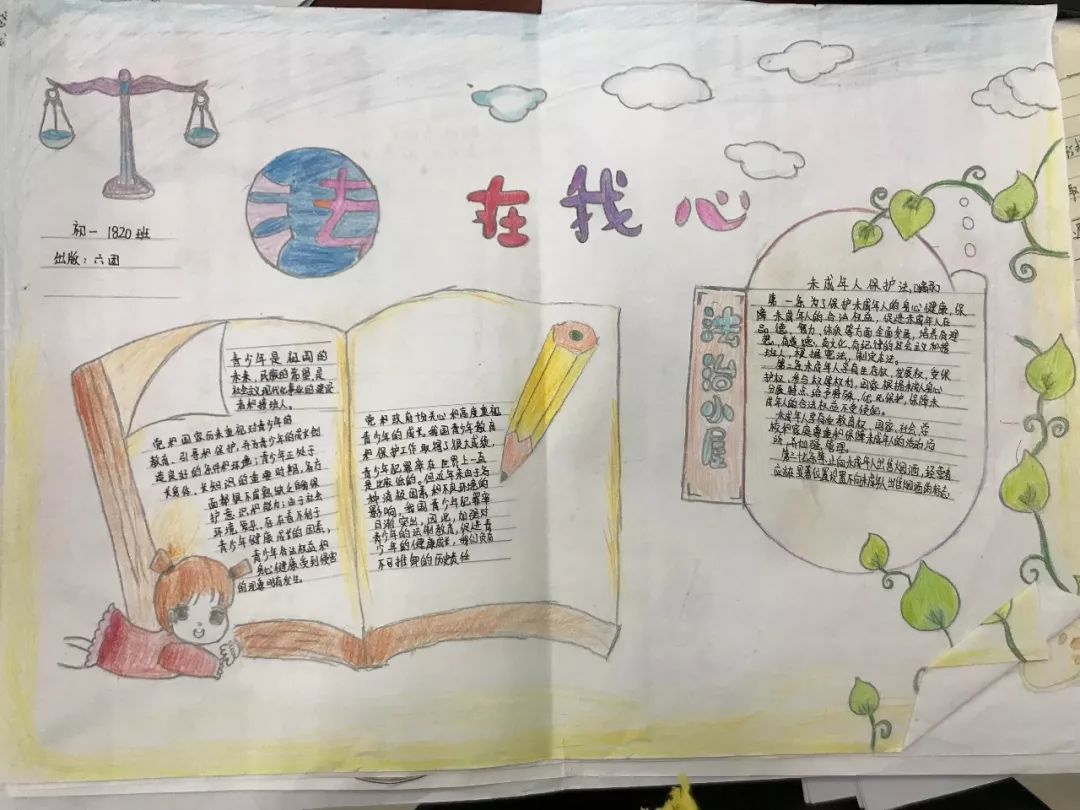 法在我心
初一 1820班
出版：六团
青少年是祖国的
未来，民族的希望，是
社会主义现代化事业的建设
者和接班人。
党和国家历来重视对青少年的
教育、引导和保护，并为青少年的成长创
造良好的条件和环境；青少年正处于
长身体、长知识的重要时期，各方
面都很不成熟，缺少自我保
护意识和能力；由于社会
环境复杂，存在着不利于
青少年健康成长的因素，
青少年合法权益和
身心健康受到侵害
的现象时有发生。
党和政府十分关心和高度重视
青少年的成长。我国青少年教育
和保护工作取得了很大成绩，
青少年犯罪率在世界上一直
是比较低的。但近年来由于各
种消极因素和不良环境的
影响，我国青少年犯罪率
日渐突出，因此，加强对
青少年的法制教育，促进青
少年的健康成长，我们负有
不可推卸的历史责任
法治小屋
未成年人保护法
第一条为了保护未成年人的身心健康，保
障未成年人的合法权益，促进未成年人在
品德、智力、体质等方面全面发展，培养有理
想、有道德、有文化、有纪律的社会主义和接
班人，根据宪法，制定本法。
第三条未成年人享有生存权、发展权、受保
护权、参与权等权利，国家根据未成年人身心
发展特点给予特殊、优先保护，保障未
成年人的合法权益不受侵犯。
未成年人享有受教育权，国家、社会、学
校和家庭尊重和保障未成年人的
第三十七条禁止向未成年人出售烟酒，经营者
应当在显著位置设置不向未成年人出售烟酒的标志